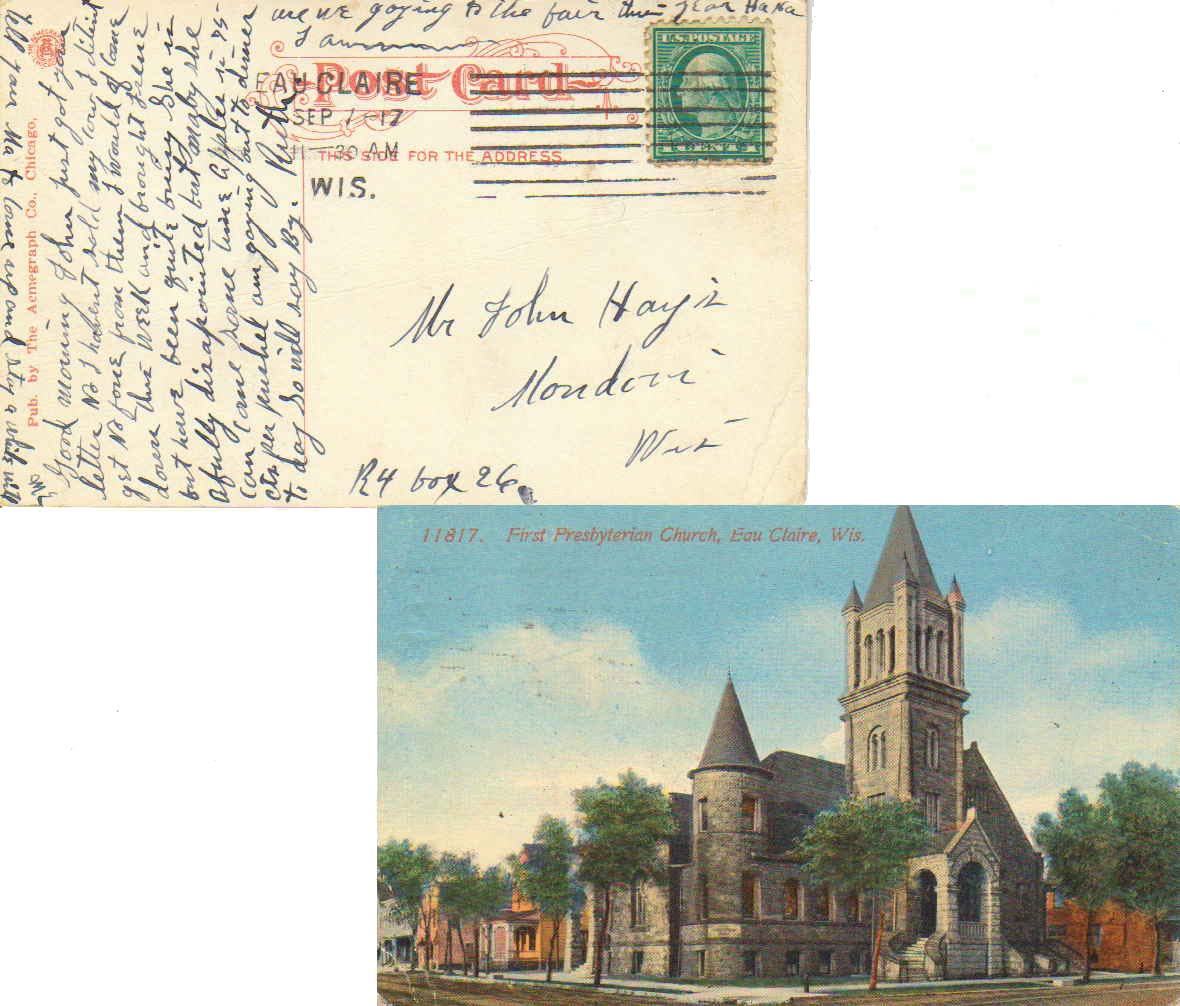 are we goying to the fair this year Ha Ha
I am
Post Card
EAU CLAIRE
SEP 7 - 17
11-30 AM
WIS.
THIS SIDE FOR THE ADDRESS.
U.S. POSTAGE
Pub. by The Acmegraph Co., Chicago,
Good morning John just got your
letter No I habent sold my town I ditint
get No fone from them I would of came
down this week and brought Irene
but have been quite busy she is
afully disapointed but maby she
can come some time apples is 75
cts per pushel am goying out to dinner
to day so will say By. Ruth
tell your Ma to come up and stay a while with
us
Mr John Hays
Mondovi
Wis
R4 box 26
11817. First Presbyterian Church, Eau Claire, Wis.